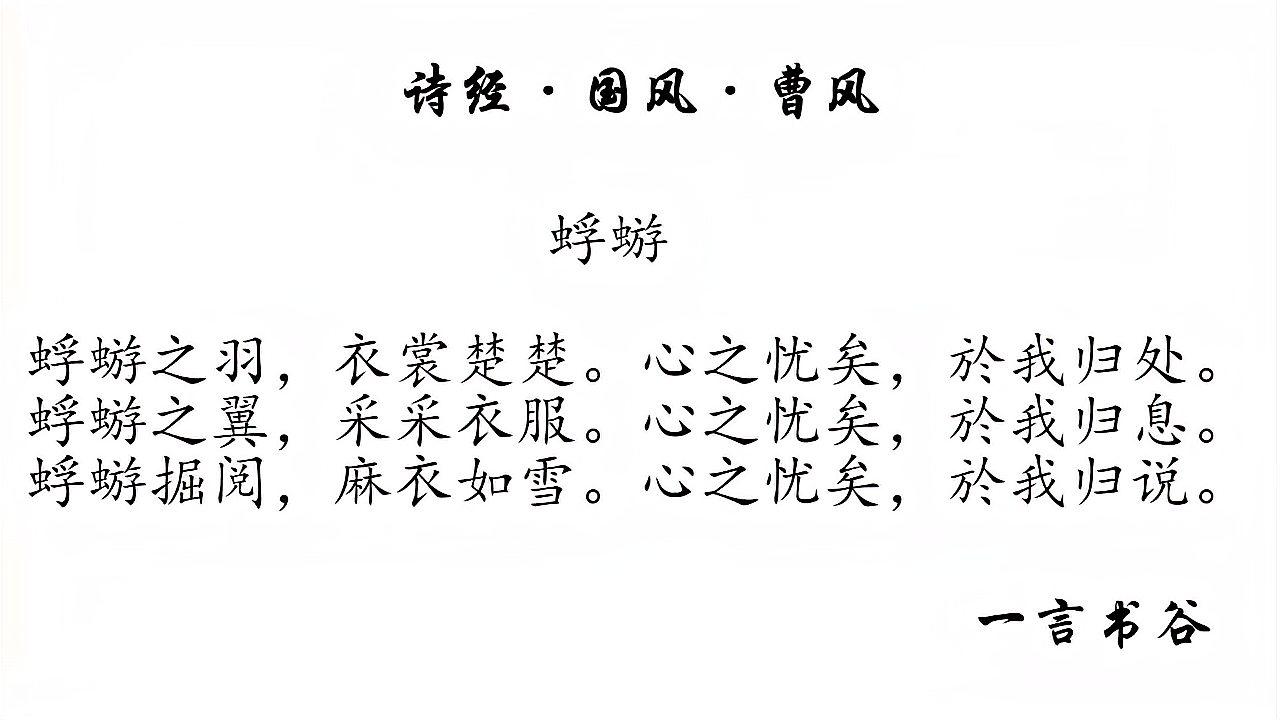 诗经·国风·曹风
蜉蝣
蜉蝣之羽，衣裳楚楚。心之忧矣，於我归处。
蜉蝣之翼，采采衣服。心之忧矣，於我归息。
蜉蝣掘阅，麻衣如雪。心之忧矣，於我归说。
一言书谷